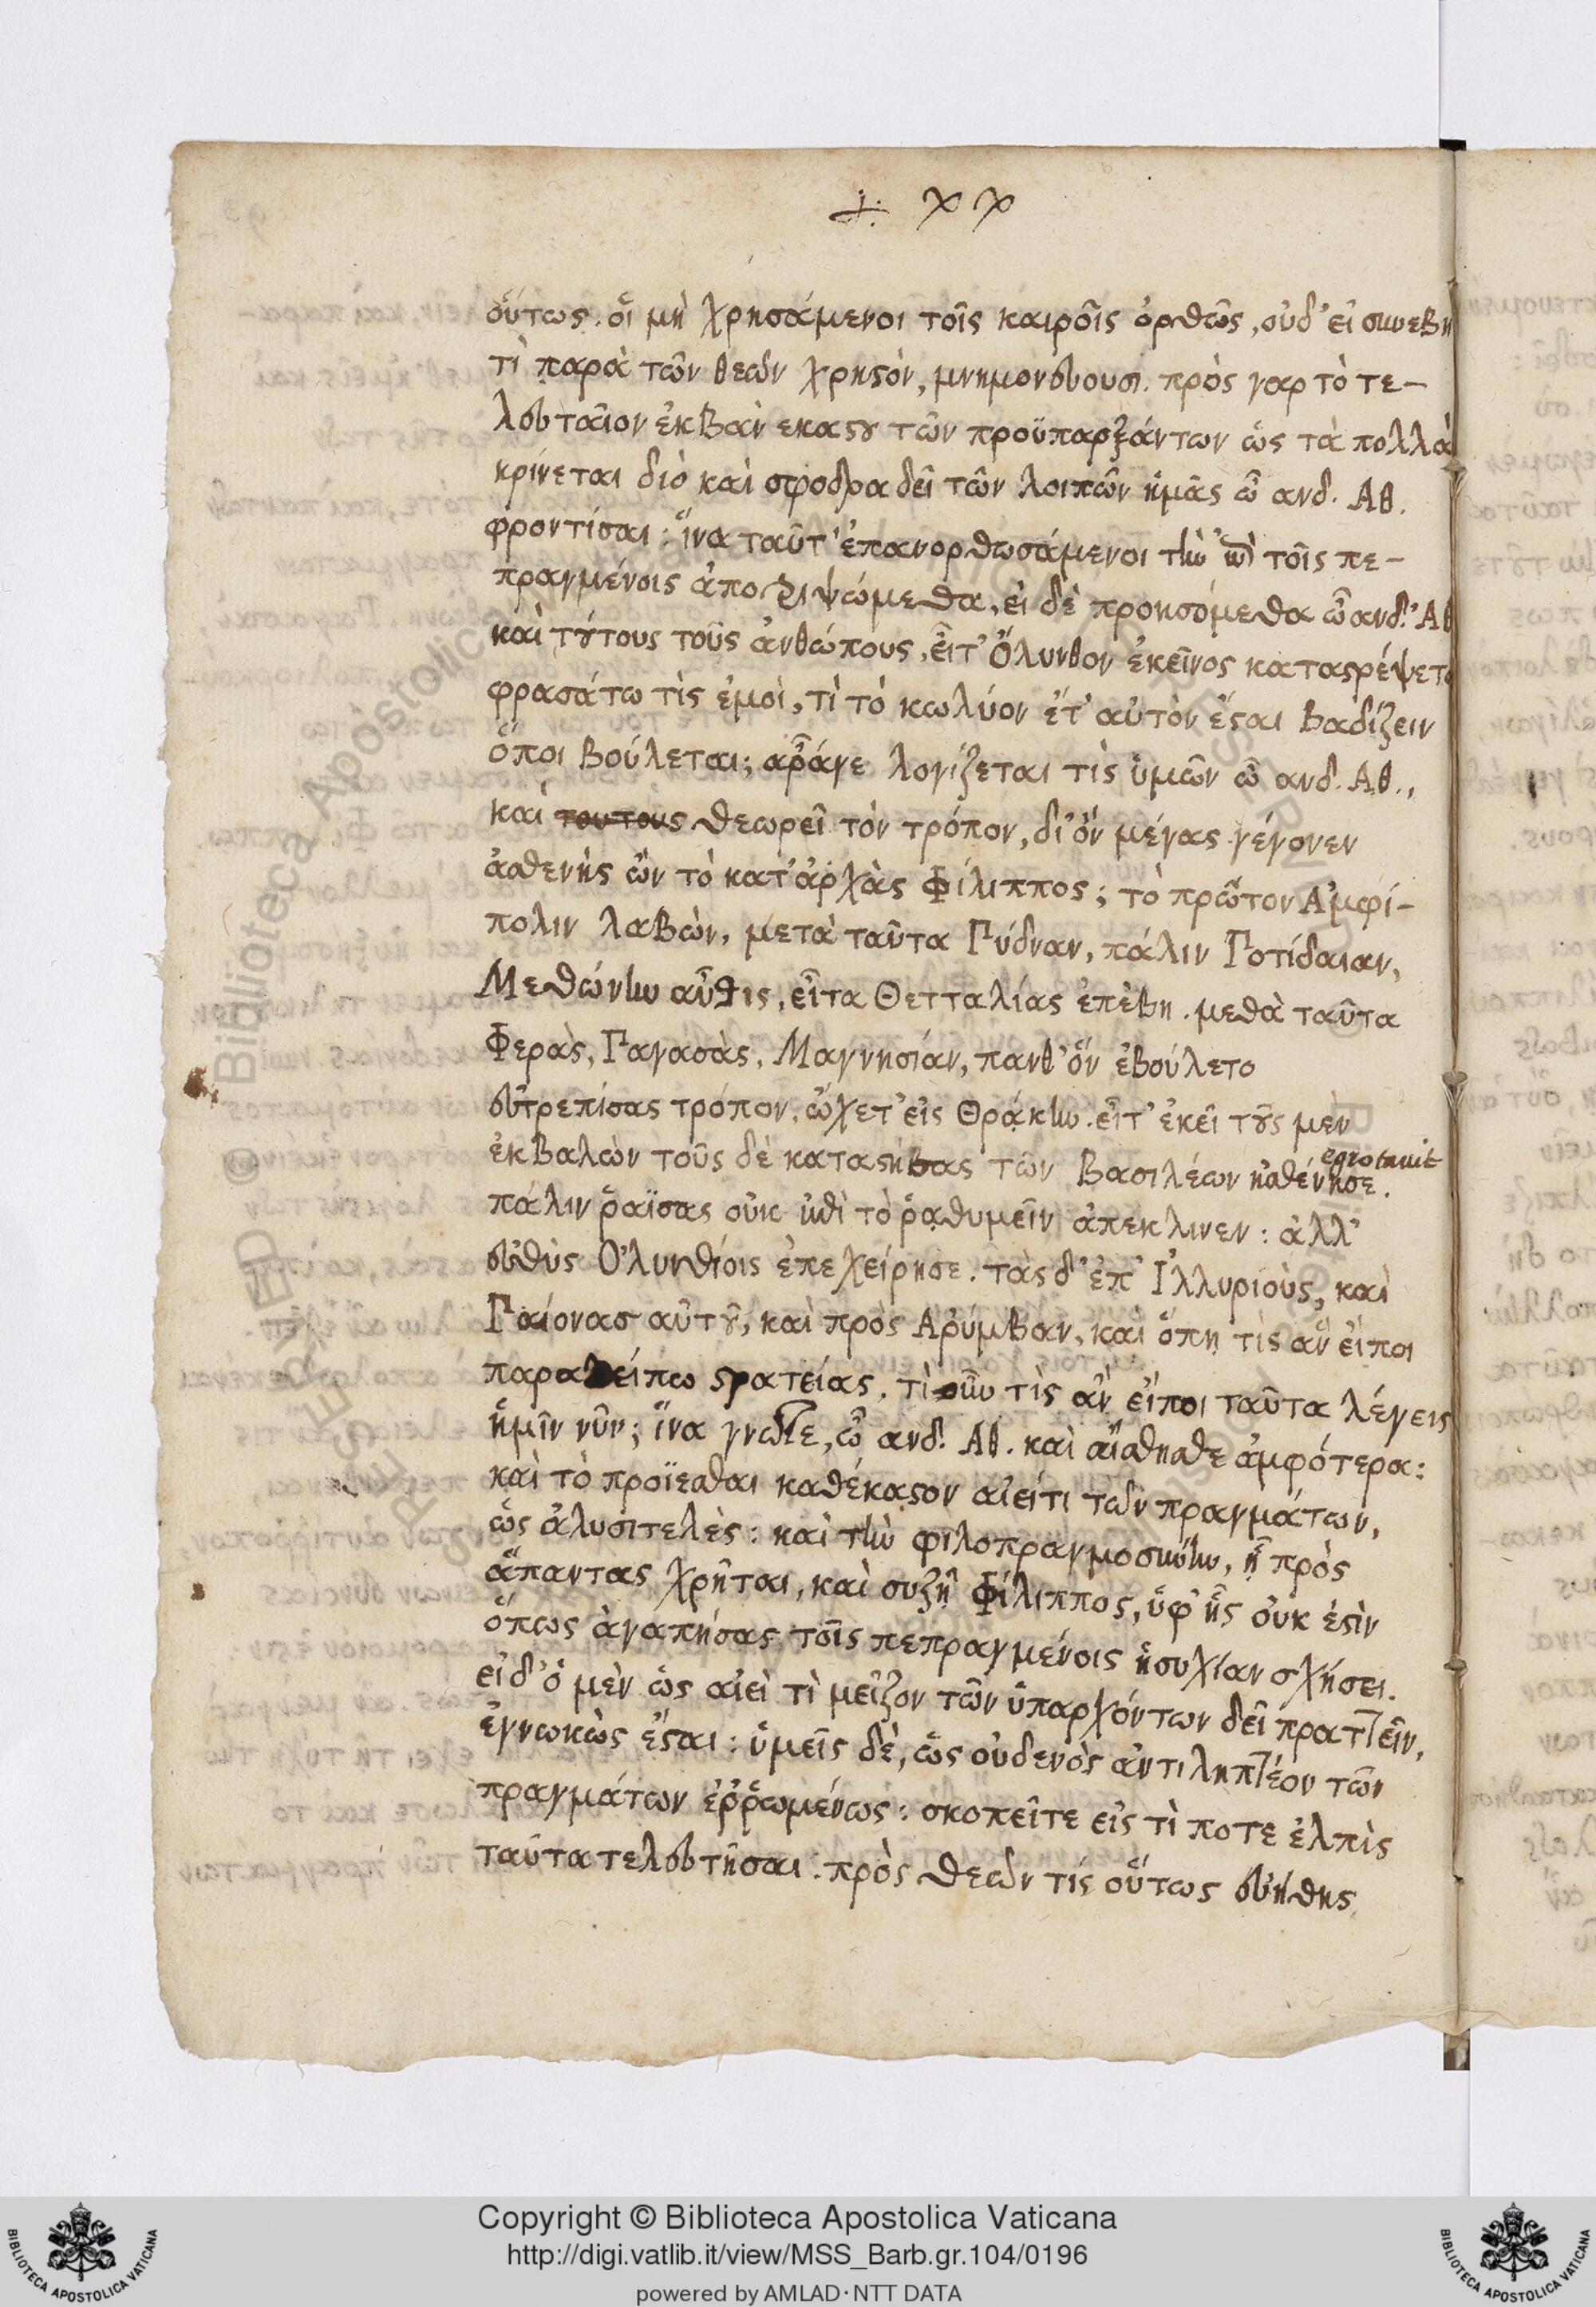 οὕτως. οἵ μὴ χρησάμενοι τοῖς καιροῖς ὀρθῶς, οὐδ' εἰ συνέβη
τὶ παρὰ τῶν θεῶν χρηστὸν, μνημονεύουσι. πρὸς γαρ τὸ τε-
λευταῖον ἐκβὰν εκαστου τῶν προϋπαρξάντων ὥς τὰ πολλὰ
κρίνεται διὸ καὶ σφοδρα δεῖ τῶν λοιπῶν ἡμᾶς ὦ ανδ. Αθ.
φροντίσαι: ἵνα ταῦτ' ἐπανορθωσάμενοι τὴν ἐπὶ τοῖς πε-
πραγμένοις ἀποτριψώμεθα, εἰ δὲ προησόμεθα ὦ ανδ. Αθ
καὶ τούτους τοὺς ἀνθώπους, εἶτ' Ὄλυνθον ἐκεῖνος καταστρέψετα
φρασάτω τὶς ἐμοὶ, τὶ τὸ κωλύον ἔτ' αὐτὸν ἔσται βαδίζειν
ὅποι βούλεται; αρἆγε λογίζεται τὶς ὑμῶν ὦ ανδ. Αθ.,
καὶ τουτους θεωρεῖ τὸν τρόπον, δι' ὃν μέγας γέγονεν
ἀσθενὴς ὢν τὸ κατ' ἀρχὰς Φίλιππος; τὸ πρῶτον Αμφί-
πολιν λαβὼν, μετὰ ταῦτα Πύδναν, πάλιν Ποτίδαιαν,
Μεθώνην αὖθις, εἶτα Θετταλίας ἐπέβη. μεθὰ ταῦτα
Φερὰς, Παγασὰς, Μαγνησίαν, πανθ' ὃν ἐβούλετο
εὐτρεπίσας τρόπον, ᾤχετ' εἰς Θράκην. εἶτ' ἐκεῖ τοὺς μὲν
ἐκβαλὼν τοὺς δὲ καταστήσας τῶν βασιλέων ἠσθένησε.
egrotauit
πάλιν ῥαΐσας οὐκ ἐπὶ τὸ ῥᾳθυμεῖν ἀπεκλινεν: ἀλλ'
εὐθὺς Ὀλυνθίοις ἐπεχείρησε. τὰς δ' ἐπ' Ἰλλυριοὺς, καὶ
Παίονας αὐτοῦ, καὶ πρὸς Αρύμβαν, καὶ ὅπῃ τὶς ἂν εἴποι
παραλείπω στρατείας. τὶ οὖν τὶς ἂν εἴποι ταῦτα λέγεις
ἡμῖν νῦν; ἵνα γνῶτε, ὦ ανδ. Αθ. καὶ αἴσθησθε ἀμφότερα:
καὶ τὸ προΐεσθαι καθέκαστον αἰεί τι τῶν πραγμάτων,
ὥς ἀλυσιτελὲς: καὶ τὴν φιλοπραγμοσύνην, ᾗ πρὸς
ἅπαντας χρῆται, καὶ συζῇ Φίλιππος, ὑφ' ἧς οὐκ ἐστὶν
ὅπως ἀγαπήσας τοῖς πεπραγμένοις ἡσυχίαν σχήσει.
εἰ δ' ὁ μὲν ὥς αἰεὶ τὶ μεῖζον τῶν ὑπαρχόντων δεῖ πραττεῖν,
ἐγνωκὼς ἔσται: ὑμεῖς δὲ, ὥς οὐδενὸς ἀντιληπτέον τῶν
πραγμάτων ἐῤῥωμένως: σκοπεῖτε εἰς τὶ ποτε ἐλπὶς
ταῦτα τελευτῆσαι: πρὸς θεῶν τίς οὕτως εὐήθης
Copyright © Biblioteca Apostolica Vaticana
http://digi.vatlib.it/view/MSS_Barb.gr.104/0196
powered by AMLAD·NTT DATA